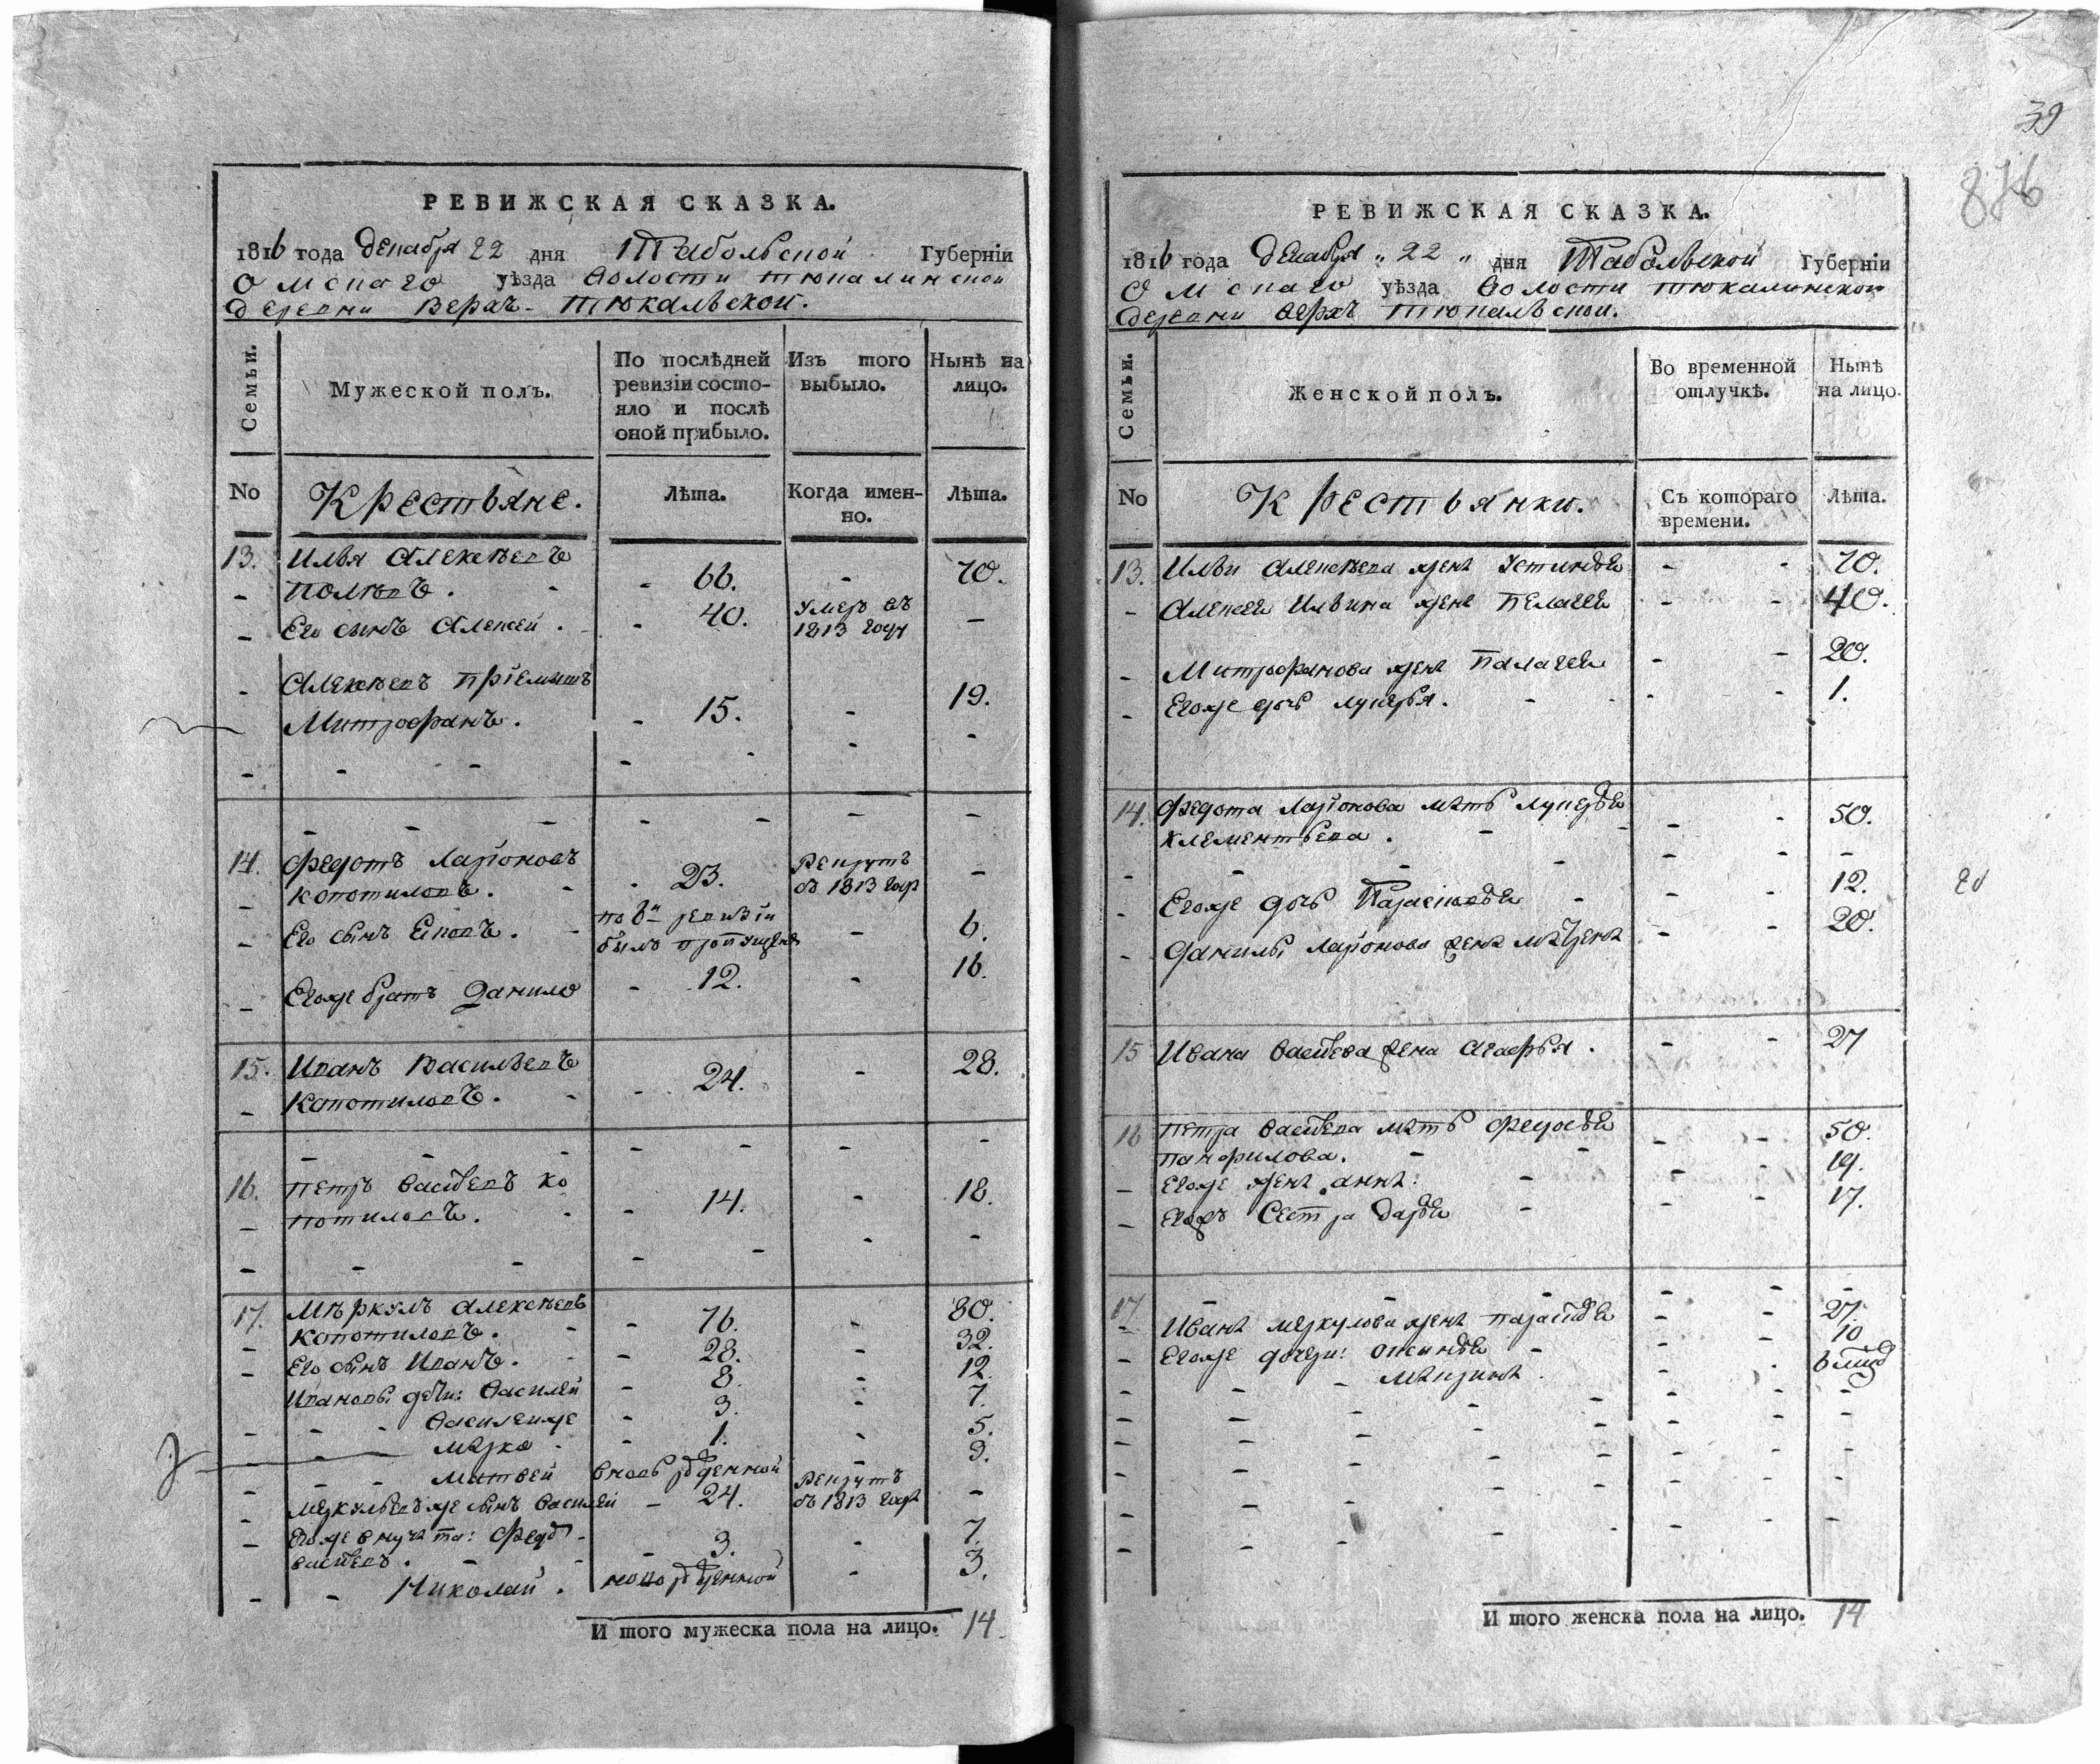 РЕВИЖСКАЯ СКАЗКА.
1816 года декабря 22 дня Табольской Губерніи
Омскаго уѣзда волости тюкалинской
деревни Верхъ-Тюкальской.
Семьи.
Мужеской полъ.
По послѣдней ревизіи состояло и послѣ оной прибыло.
Изъ того выбыло.
Нынѣ на лицо.
No
Крестьяне.
Лѣта.
Когда именно.
Лѣта.
13. Илья Алексѣевъ
Полѣвъ. 66. - 70.
Его сынъ Алексей. 40. умеръ въ 1813 году -
Алексѣевъ пріемышъ
Митрофанъ. 15. - 19.
14. Федотъ Ларіоновъ
Копотиловъ. 23. Рекрутъ въ 1813 году -
Его сынъ Еѵповъ. по 6й ревизіи былъ пропущенъ - 6.
Егоже братъ Данило 12. - 16.
15. Иванъ Васильевъ
Копотиловъ. 24. - 28.
16. Петръ Васильевъ Ко
потиловъ. 14. - 18.
17. Мѣркулъ Алексѣевъ
Копотиловъ. 76. - 80.
Его сынъ Иванъ. 28. - 32.
Ивановы дѣти: Василей 8. - 12.
Василейже 3. - 7.
Марко 1. - 5.
Матвей вновь рожденной - 3.
Меркульевъже сынъ Василей 24. Рекрутъ въ 1813 году -
Егоже внучата: Федоръ
Васильевъ. 3. - 7.
Николай. новорожденной - 3.
И того мужеска пола на лицо. 14
39
876
РЕВИЖСКАЯ СКАЗКА.
1816 года декабря „22„ дня Табольской Губерніи
Омскаго уѣзда волости тюкалинской
деревни верхъ Тюкальской.
Семьи.
Женской полъ.
Во временной отлучкѣ.
Нынѣ на лицо.
No
Крестьянки.
Съ котораго времени.
Лѣта.
13. Ильи Алексѣева жена Устиндья - - 70.
Алексея Ильина жена Пелагея - - 40.
Митрофанова жена Палагея - - 20.
Егоже дочь Лукерья. - - 1.
14. Федота Ларіонова мать Лукерья
Клементьева. - - 50.
Егоже дочь Парасковья - - 12.
Данилы Ларіонова жена Матрена - - 20.
15 Ивана Васильева жена Агафья. - - 27
16 Петра Васильева мать Федосья
Панфилова. - - 50.
Егоже жена Анна: - 19.
Егожъ Сестра Дарья - - 17.
17 Ивана Меркулова жена Парасковья - 27.
Егоже дочери: Аксинья - 10
Матрина. 6 мѣсяцъ
И того женска пола на лицо. 14